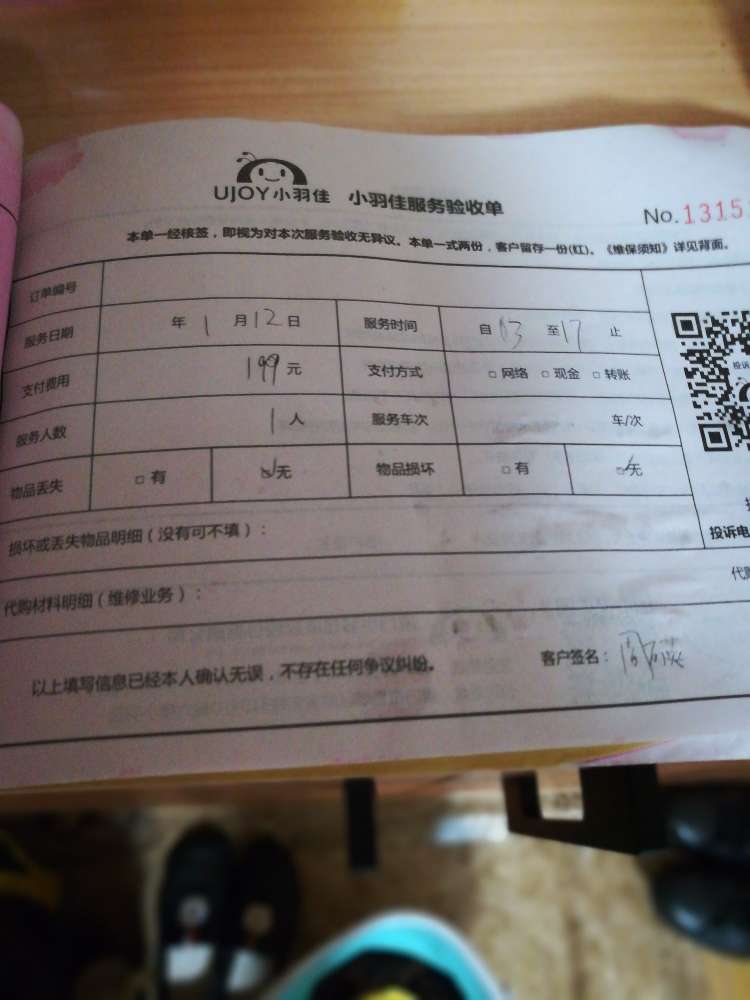 UJOY小羽佳 小羽佳服务验收单
No.1315
本单一经核签，即视为对本次服务验收无异议。本单一式两份，客户留存一份(红)。《维保须知》详见背面。
订单编号
服务日期 年 1 月 12 日 服务时间 自 13 至 17 止
支付费用 199 元 支付方式 □ 网络 □ 现金 □ 转账
服务人数 1 人 服务车次 车/次
物品丢失 □ 有 ☑无 物品损坏 □ 有 ☑无
投诉
损坏或丢失物品明细（没有可不填）：
投诉电
代购材料明细（维修业务）：
代购
以上填写信息已经本人确认无误，不存在任何争议纠纷。 客户签名：